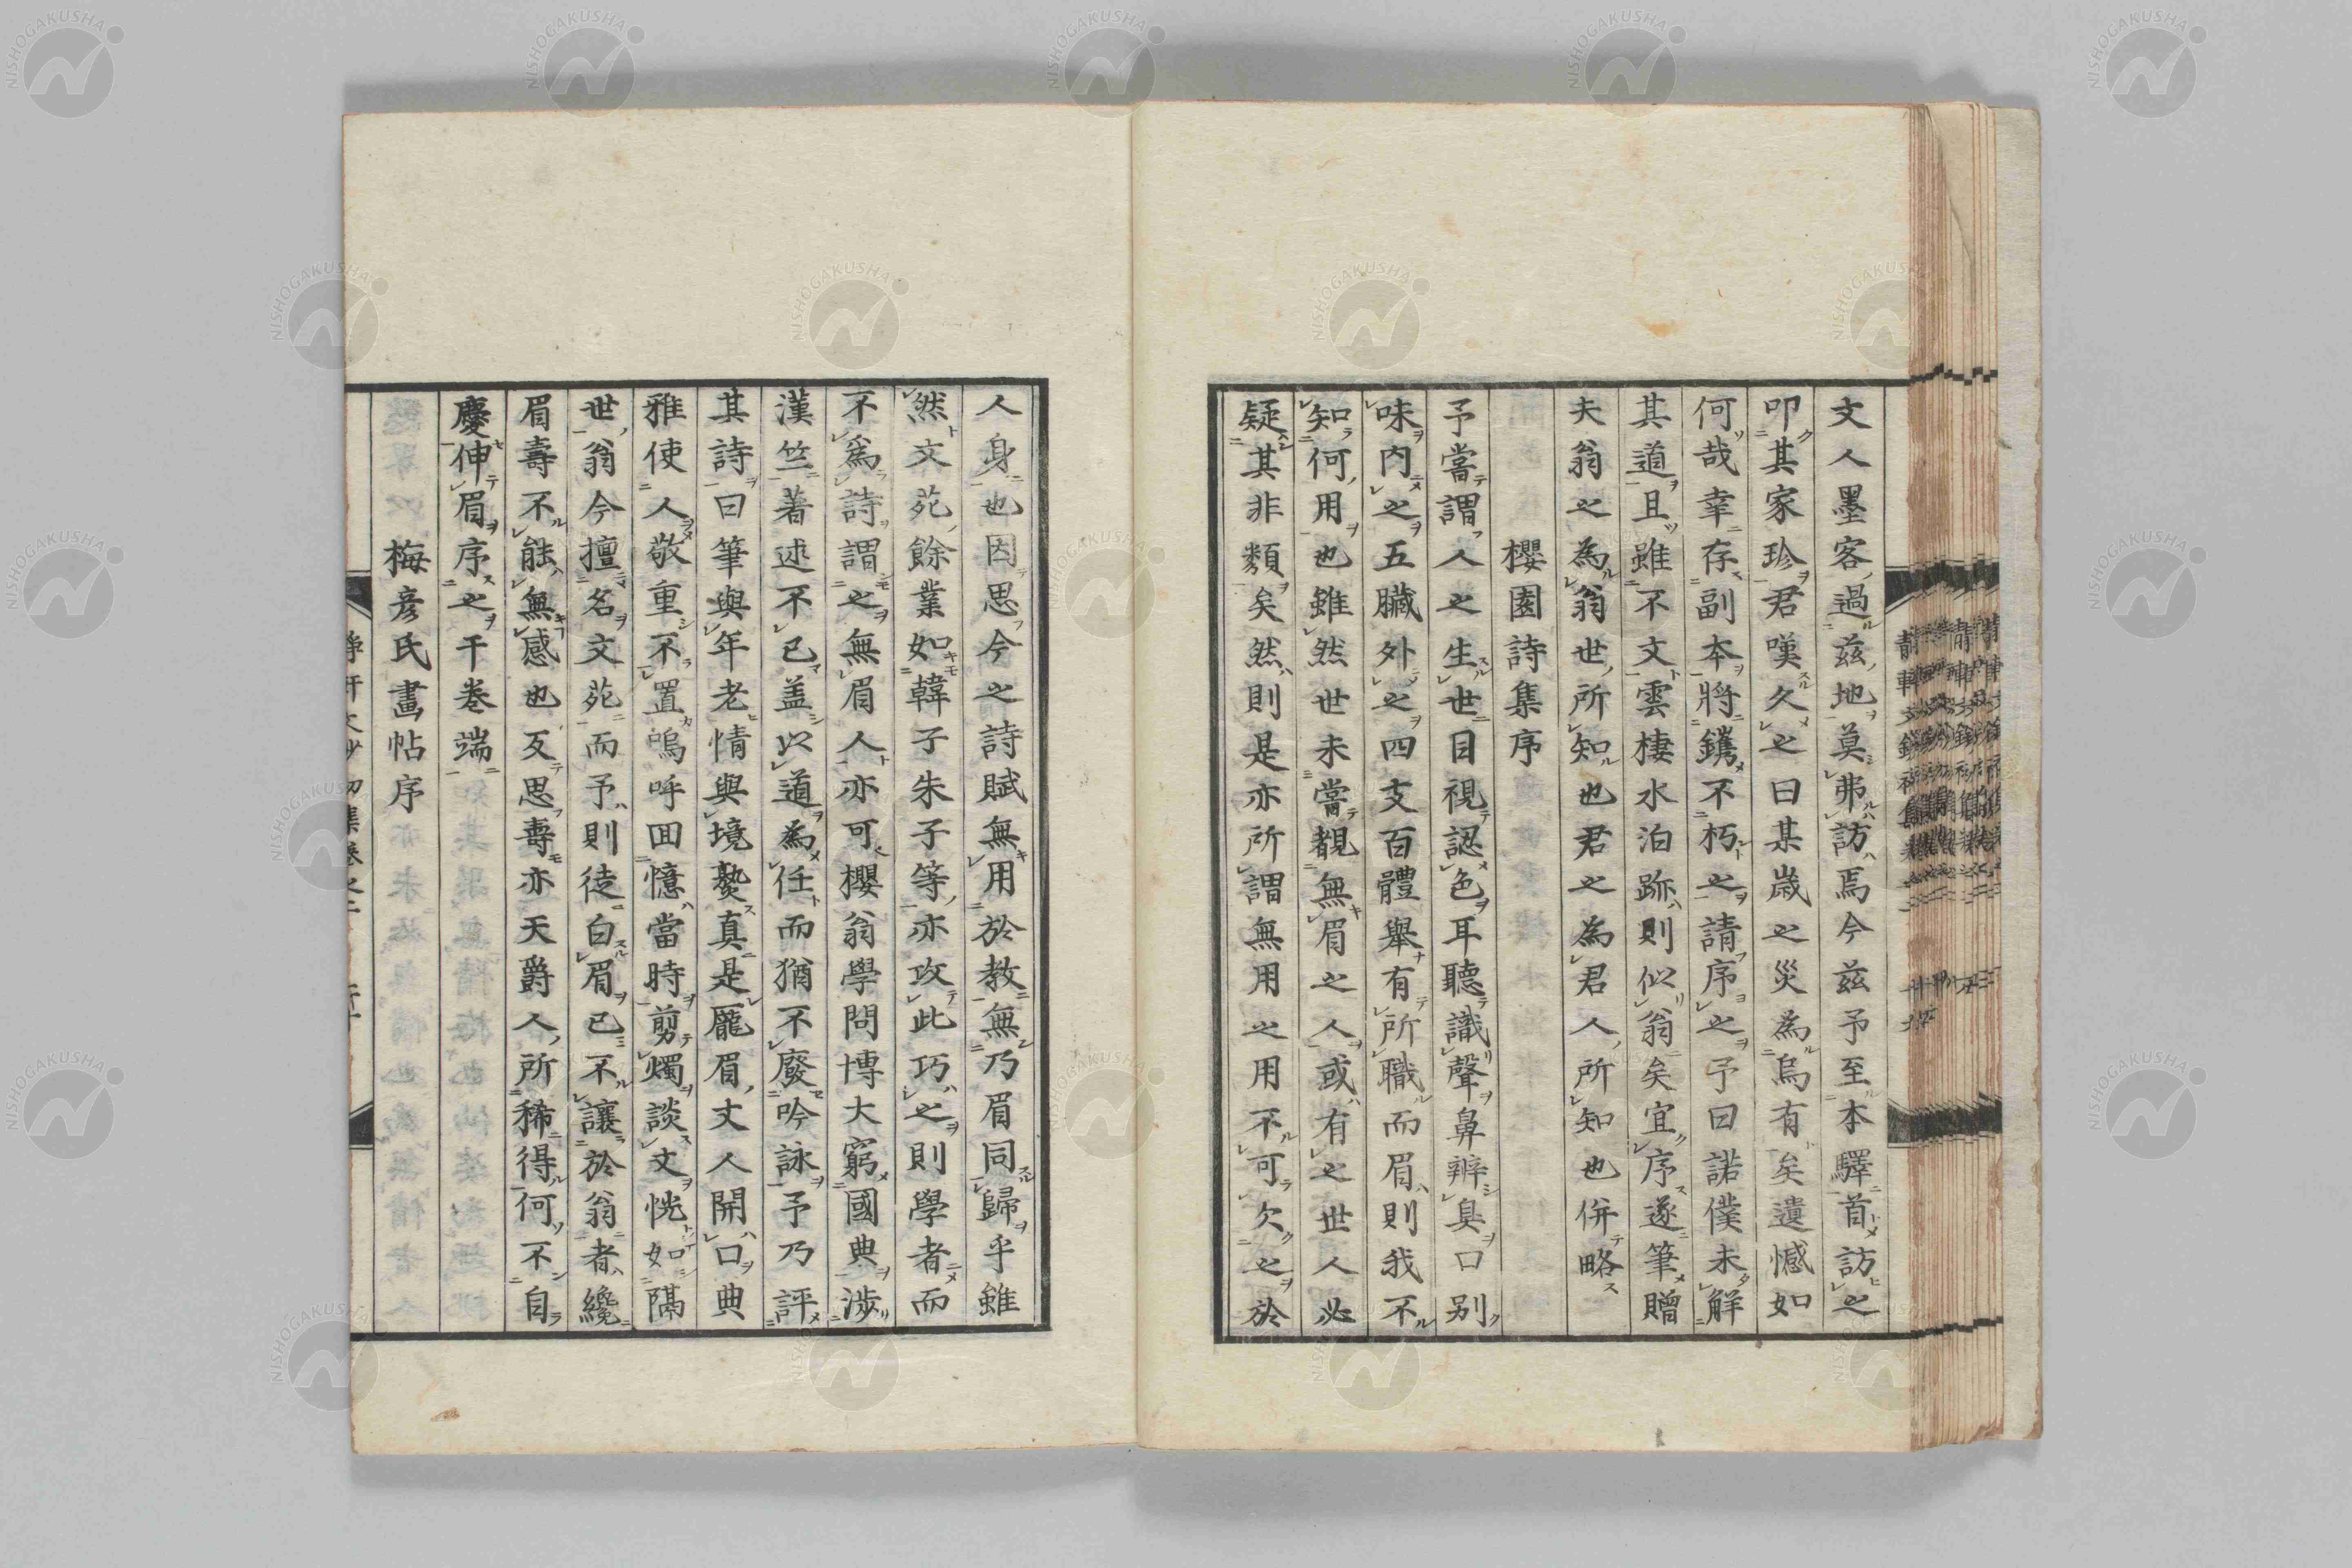 文人墨客過茲地莫弗訪焉今茲予至本驛首訪之
叩其家珍君嘆久之曰某歲之災為烏有矣遺憾如
何哉幸存副本將鐫不朽之請序之予曰諾僕未解
其道且雖不文雲棲水泊跡則似翁矣宜序遂筆贈
夫翁之為翁世所知也君之為君人所知也併略
櫻園詩集序
予嘗謂人之生世目視認色耳聽識聲鼻辨臭口別
味內之五臟外之四支百體舉有所職而眉則我不
知何用也雖然世未嘗覩無眉之人或有之世人必
疑其非類矣然則是亦所謂無用之用不可欠之於
人身也因思今之詩賦無用於教無乃眉同歸乎雖
然文苑餘業如韓子朱子等亦攻此巧之則學者而
不爲詩謂之無眉人亦可櫻翁學問博大窮國典涉
漢竺著述不已盖以道為任而猶不廢吟詠予乃評
其詩曰筆與年老情與境爇真是龐眉丈人開口典
雅使人敬重不置嗚呼回憶當時剪燭談文恍如隔
世翁今擅名文苑而予則徒白眉已不讓於翁者纔
眉壽不能無感也又思壽亦天爵人所稀得何不自
慶伸眉序之干卷端
梅彥氏畫帖序
NISHOGAKUSHA